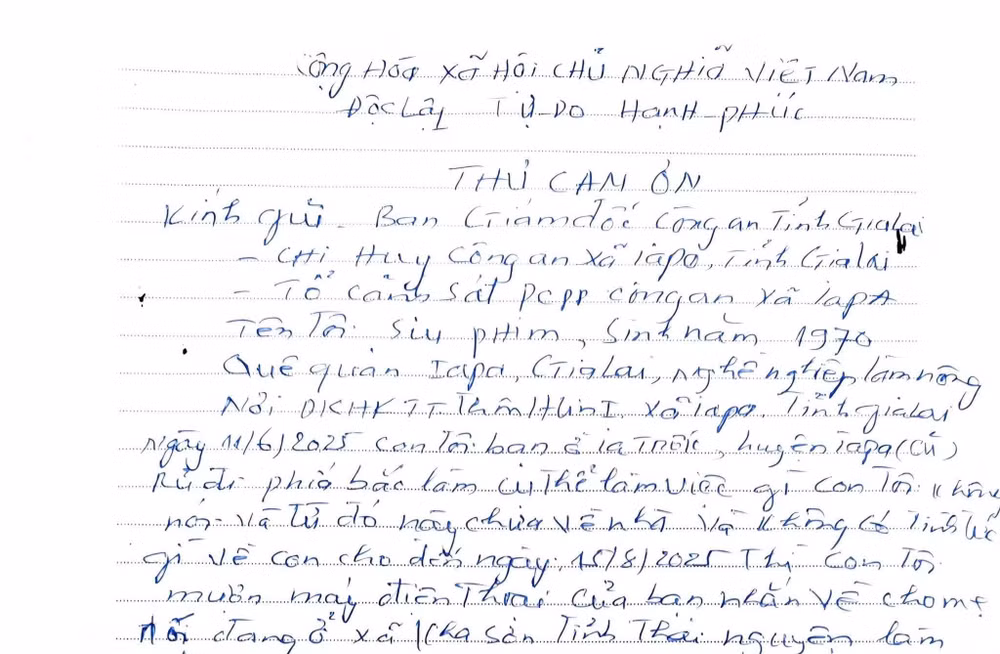 Cộng Hòa Xã Hội CHủ NGHĩa Việt Nam
Độc Lập Tự-Do HẠNH-PHúc
THƯ CAM ƠN
Kính gửi. Ban Giám đốc Công an Tỉnh Gialai
- CHỉ Huy Công an xã iapa, Tỉnh Gialai
- Tổ cảnh sát pcpp công an xã iapA
Tên Tôi: Siu pHim, Sinh năm 1970
Quê quán Iapa, Gialai, nghề nghiệp làm nông
Nơi DKHKTT, xã iapa. Tỉnh gialai
ngày 11/6/2025 con Tôi: bạn ở ia Trốc, huyện iapa (Cũ)
Rủ đi phía bắc làm cụ Thể làm việc gì con Tôi không
nói. Và từ đó nay chưa về nhà và không có Tinh tức
gì về con cho đến ngày, 15/8/2025 Thì con Tôi
mượn máy điện Thoại của bạn nhắn về cho mẹ
nói đang ở xã Kha sơn Tỉnh Thái nguyên làm